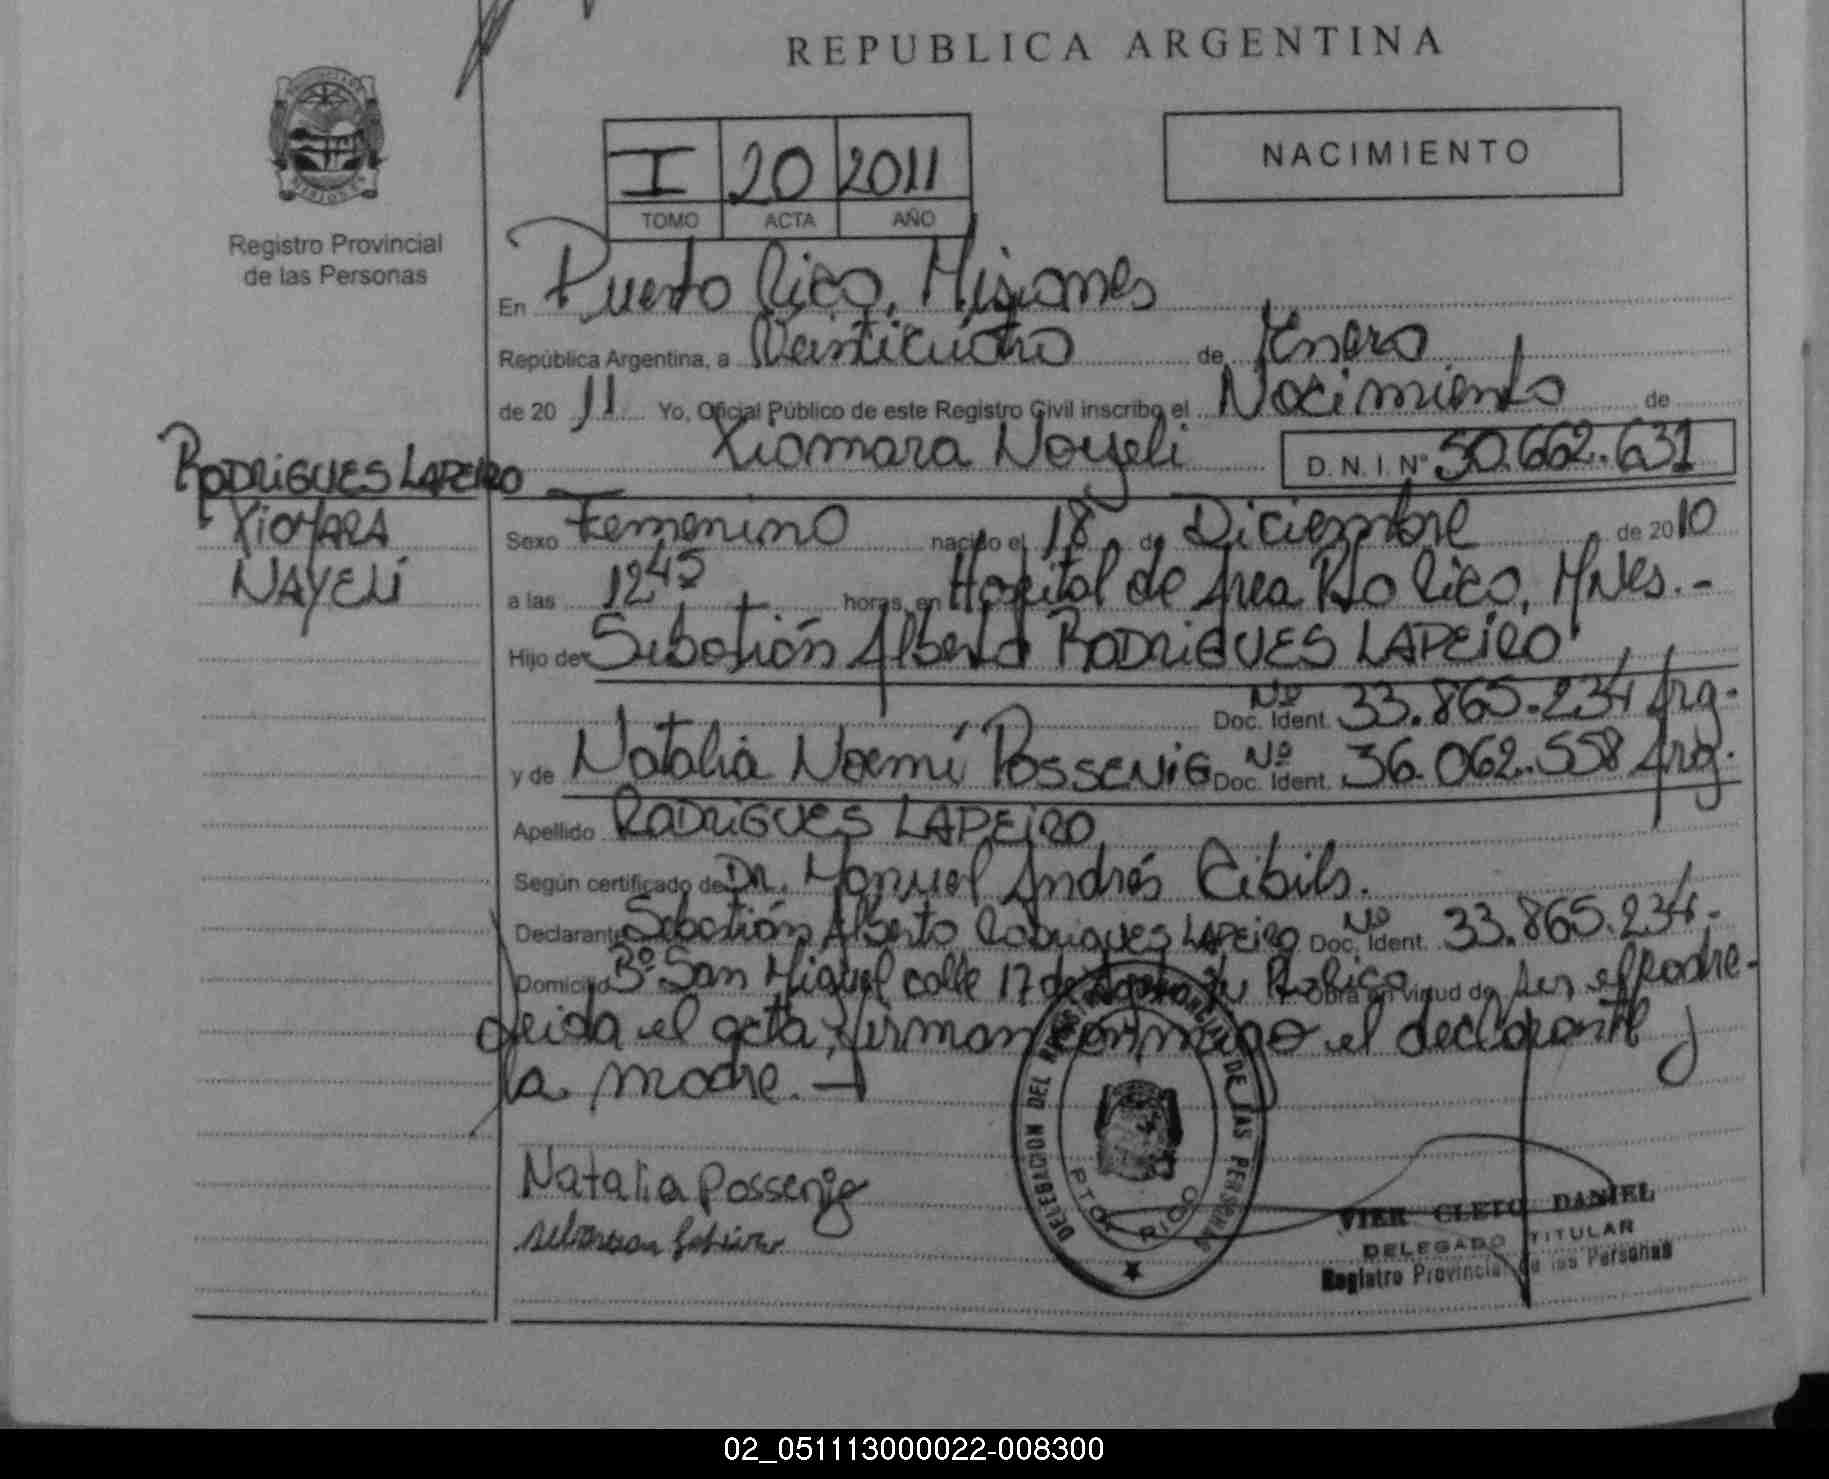 REPUBLICA ARGENTINA
NACIMIENTO
I 20 2011
TOMO ACTA AÑO
Registro Provincial
de las Personas
En Puerto Rico, Misiones
República Argentina, a Veinticuatro de Enero
de 20 11 Yo, Oficial Público de este Registro Civil inscribo el Nacimiento de
Xiomara Nayeli D. N. I. N° 50.662.631
RODRIGUES LAPEIRO
XIOMARA
NAYELI
Sexo Femenino nacido el 18 de Diciembre de 2010
a las 12 45 horas, en Hospital de Area Pto Rico, Mnes. -
Hijo de Sebastián Alberto RODRIGUES LAPEIRO
Nº Doc. Ident. 33.865.234 Arg.
y de Natalia Noemí POSSENIG Nº Doc. Ident. 36.062.558 Arg.
Apellido RODRIGUES LAPEIRO
Según certificado de Dr. Manuel Andrés Cibils.
Declarante Sebastián Alberto Rodrigues LAPEIRO Nº Doc. Ident. 33.865.234.-
Domicilio Bº San Miguel calle 17 de Agosto Pto Rico Obra en virtud de ser el padre-
leida el acta, firman conmigo el declarante y
la madre. —
Natalia Possenig
DELEGACION DEL REGISTRO PROVINCIAL DE LAS PERSONAS
PTO. RICO
VIER CLETO DANIEL
DELEGADO TITULAR
Registro Provincial de las Personas
02_051113000022-008300